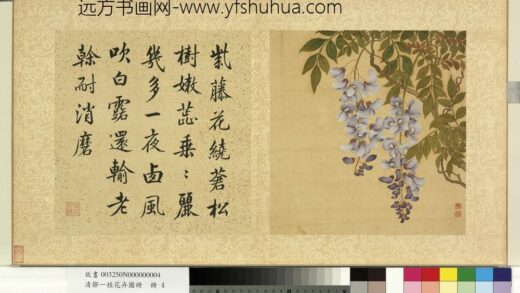 远方书画网-www.yfshuhua.com
紫藤花繞蒼松
樹嫩蕊垂〻麗
幾多一夜鹵風
吹白露還輸老
榦耐消磨
故畫 003250N000000004
清鄒一桂花卉圖冊 冊 4